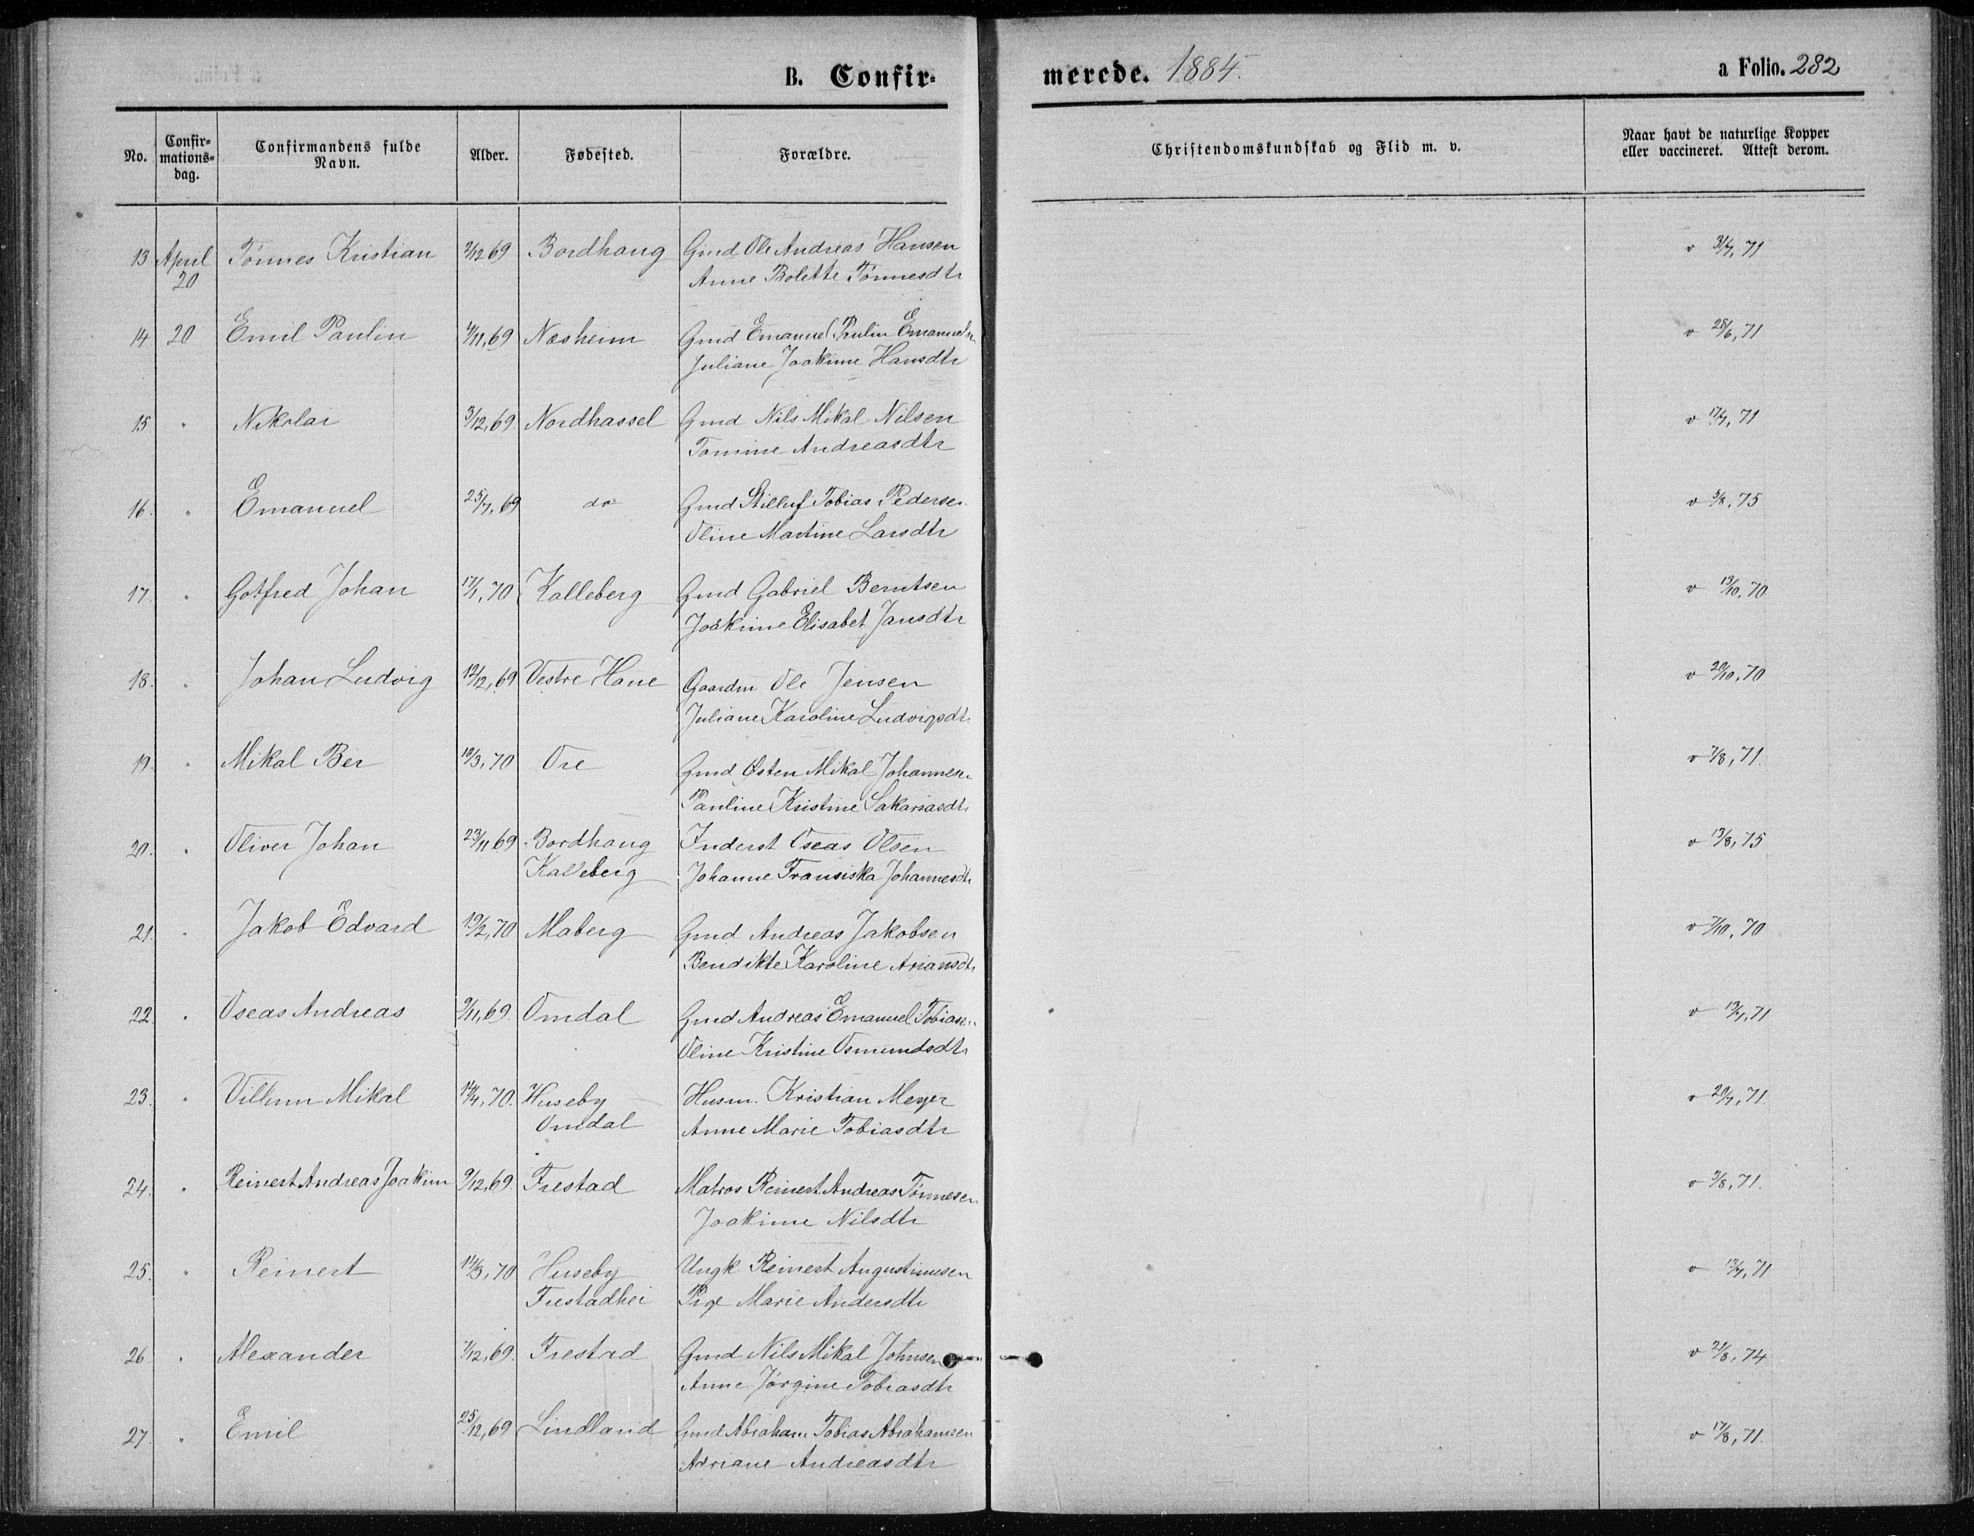 B. Confir-
merede. 1884.
a Folio. 282
No.
Confir-
mations-
dag.
Confirmandens fulde
Navn.
Alder.
Fødested.
Forældre.
Christendomskundskab og Flid m. v.
Naar havt de naturlige Kopper
eller vaccineret. Attest derom.
13 April Tönnes Kristian 2/12 69 Bordhaug Gmd Ole Andreas Hansen v 31/7, 71
20 Anne Bolette Tønnesdtr
14 20 Emil Paulin 4/11, 69 Næsheim Gmd Emanuel Paulin Emanuels v 28/6, 71
Juliane Joakime Hansdtr
15 " Nikolai 3/12, 69 Nordhassel Gmd Nils Mikal Nilsen v 17/7, 71
Tomine Andreasdtr
16. " Emanuel 25/7, 69 do Gmd Stilluf Tobias Pedersen v 5/8, 75
Oline Martine Larsdtr
17. " Gotfred Johan 17/1, 70 Kalleberg Gmd Gabriel Berntsen v 13/10, 70
Joakime Elisabet Jansdtr
18. " Johan Ludvig 12/12, 69 Vestre Haue Gaardm Ole Jensen v 20/10, 70
Juliane Karoline Ludvigsdtr
19. " Mikal Ber 10/3, 70 Ore Gmd Østen Mikal Johannesen v 7/8, 71.
Pauline Kristine Sakariasdtr
20. " Oliver Johan 23/11 69 Bordhaug Inderst Oseas Olsen v 13/8, 75
Kalleberg Johanne Fransiska Johannesdtr
21. " Jakob Edvard 19/2, 70 Maberg Gmd Andreas Jakobsen v 7/10, 70
Bendikte Karoline Ariansdtr
22. " Oseas Andreas 9/11, 69. Omdal Gmd Andreas Emanuel Tobiasen v 13/7, 71
Oline Kristine Osmundsdtr
23. " Villum Mikal 14/4, 70. Huseby Husm. Kristian Meyer v 20/7, 71.
Omdal Anne Marie Tobiasdtr
24. " Reinert Andreas Joakim 9/12, 69 Frestad Matros Reinert Andreas Tönnesen v 9/8, 71.
Joakime Nilsdtr
25. " Reinert 14/3, 70 Huseby Ungk. Reinert Augustinusen v 13/7, 71
Frestadhei Pige Marie Andersdtr
26 " Alexander 1/12, 69. Frestad Gmd Nils Mikal Johnsen v 21/8, 74
Anne Jörgine Tobiasdtr
27 " Emil 25/12, 69 Lindland Gmd Abraham Tobias Abrahamsen v 17/8, 71.
Adriane Andreasdtr